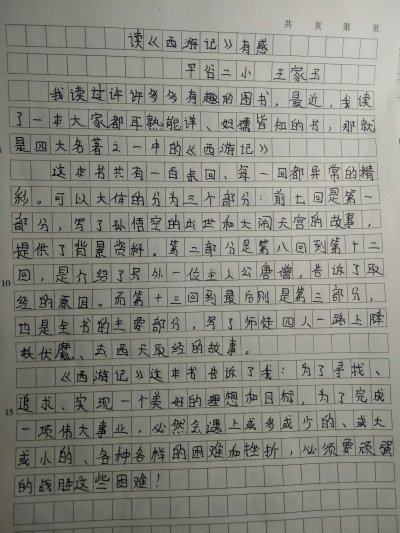 共 页 第 页
读《西游记》有感
平谷二小 王家玉
我读过许许多多有趣的图书，最近，我读
了一本大家都耳熟能详、妇孺皆知的书，那就
是四大名著之一中的《西游记》
这本书共有一百余回，每一回都异常的精
彩。可以大体的分为三个部分：前七回是第一
部分，写了孙悟空的出世和大闹天宫的故事，
提供了背景资料。第二部分是第八回到第十二
10 回，是介绍了另外一位主人公唐僧，告诉了取
经的原因。而第十三回到最后则是第三部分，
也是全书的主要部分，写了师徒四人一路上降
妖伏魔、去西天取经的故事。
《西游记》这本书告诉了我：为了寻找、
15 追求、实现一个美好的理想和目标，为了完成
一项伟大事业，必然会遇上或多或少的、或大
或小的、各种各样的困难和挫折，必须要顽强
的战胜这些困难！